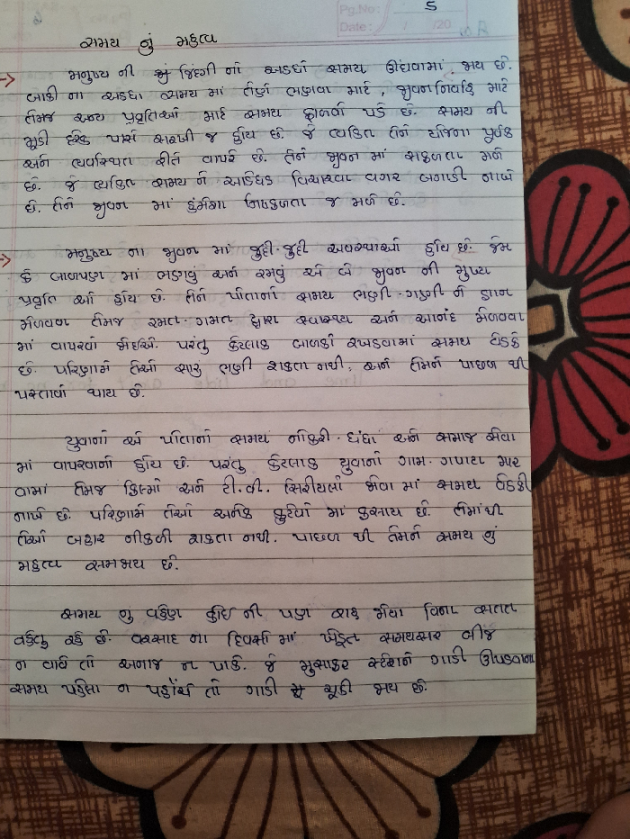 Pg.No: 5
Date: / /20
સમય નું મહત્વ
મનુષ્ય ની જિંદગી નો અડધો સમય ઊંઘવામાં જાય છે.
બાકી ના અડધા સમય માં તેણે ભણવા માટે, જીવનનિર્વાહ માટે
તેમજ અન્ય પ્રવૃતિઓ માટે સમય ફાળવવો પડે છે. સમય ની
મૂડી દરેક પાસે સરખી જ હોય છે. જે વ્યકિત તેને યોજના પૂર્વક
અને વ્યવસ્થિત રીતે વાપરે છે. તેને જીવન માં સફળતા મળે
છે. જે વ્યકિત સમય ને આડેધડ વિચારવા વગર બગાડી નાખે
છે. તેને જીવન માં હંમેશા નિષ્ફળતા જ મળે છે.
મનુષ્ય ના જીવન માં જુદી-જુદી અવસ્થાઓ હોય છે. જેમ
કે બાળપણ માં ભણવું અને રમવું એ બે જીવન ની મુખ્ય
પ્રવૃતિ ઓ હોય છે. તેને પોતાનો સમય ભણી-ગણી ને જ્ઞાન
મેળવવા તેમજ રમત-ગમત દ્વારા સ્વાસ્થ્ય અને આનંદ મેળવવા
માં વાપરવો જોઈએ. પરંતુ કેટલાક બાળકો રખડવામાં સમય વેડફે
છે. પરિણામે તેઓ સારું ભણી શકતા નથી, અને તેમને પાછળ થી
પસ્તાવો થાય છે.
યુવાનો એ પોતાનો સમય નોકરી-ધંધા અને સમાજ સેવા
માં વાપરવાનો હોય છે. પરંતુ કેટલાક યુવાનો ગામ-ગપાટા માર
વામાં તેમજ ફિલ્મો અને ટી.વી. સિરીયલો જોવા માં સમય વેડફી
નાખે છે. પરિણામે તેઓ અનેક કુટેવો માં ફસાય છે. તેમાંથી
તેઓ બહાર નીકળી શકતા નથી. પાછળ થી તેમને સમય નું
મહત્વ સમજાય છે.
સમય નુ વહેણ કોઈ ની પણ રાહ જોયા વિના સતત
વહેતુ રહે છે. વરસાદ ના દિવસો માં ખેડૂત સમયસર બીજ
ન વાવે તો અનાજ ન પાકે. જે મુસાફર સ્ટેશને ગાડી ઊપડવાના
સમય પહેલા ન પહોંચે તો ગાડી ચૂકી જાય છે.